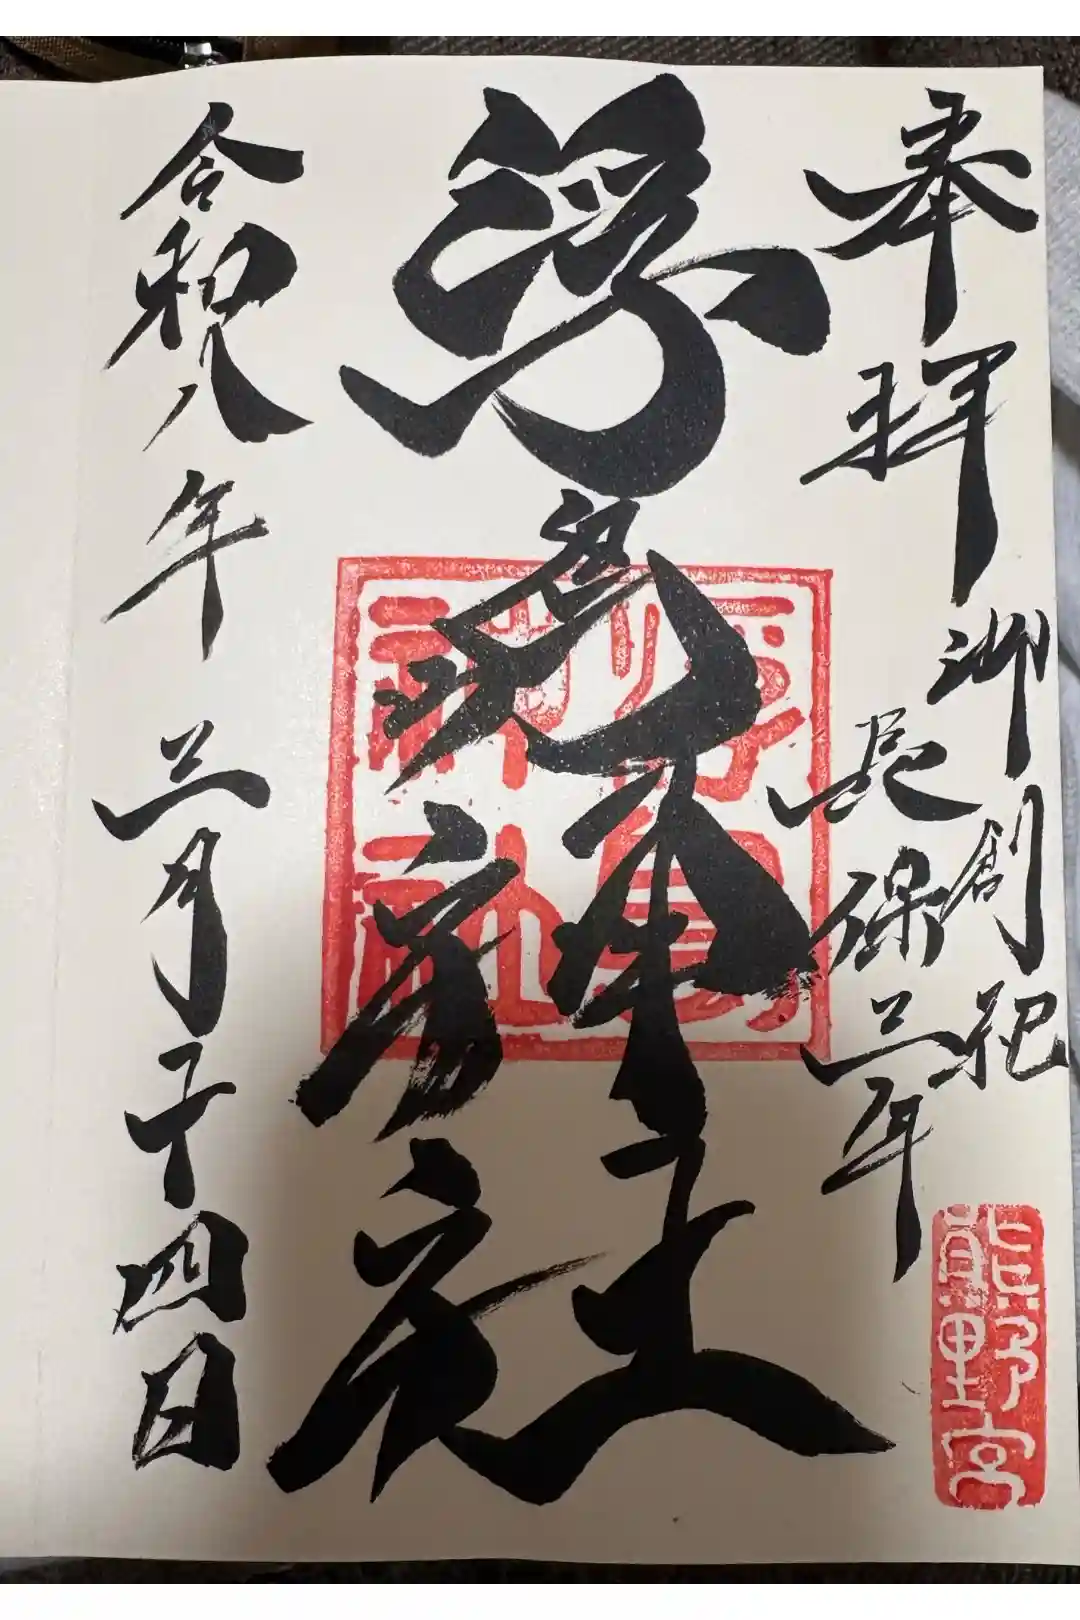 奉拝
御創祀
長保三年
熊野宮
浮島神社
浮島
神社
令和八年三月十四日